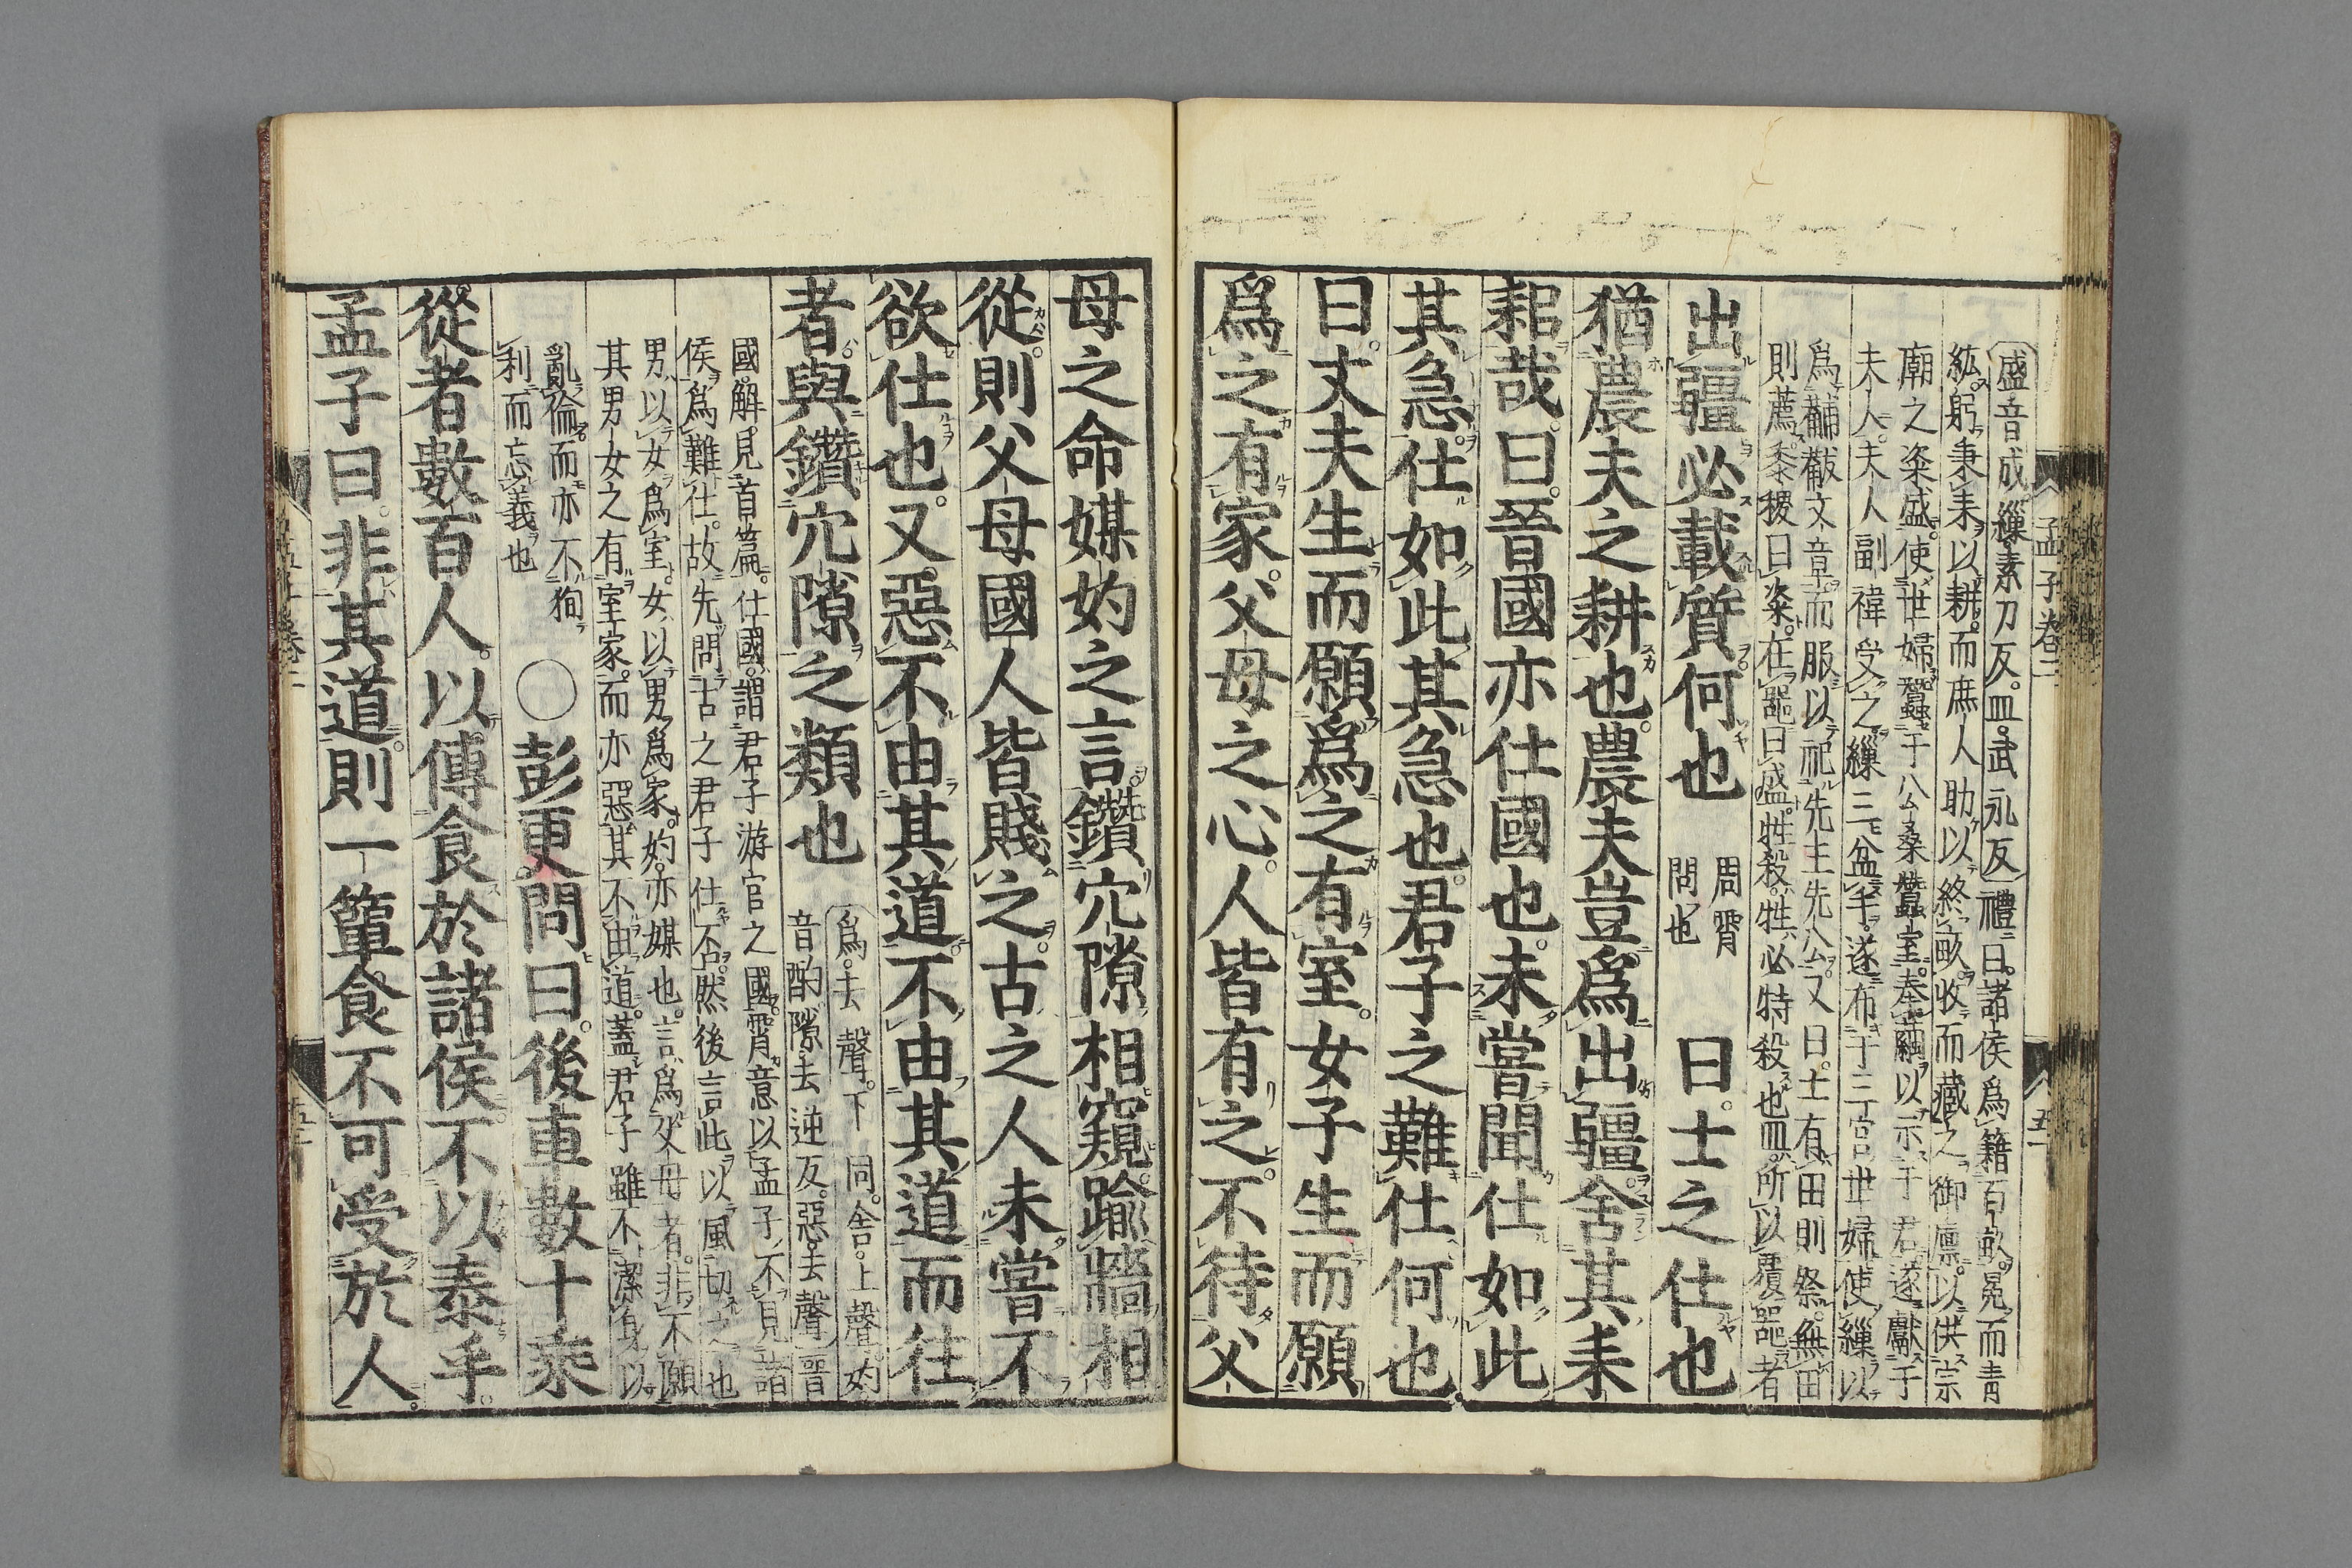 孟子卷三
盛音成繅素刀反皿武永反禮曰諸侯爲籍百畝冕而靑
紘躬秉耒以耕而庶人助以終畝收而藏之御廩以供宗
廟之粢盛使世婦蠶于公桑蠶室奉繭以示于君遂獻于
夫人夫人副褘受之繅三盆手遂布于三宮世婦使繅以
爲黼黻文章而服以祀先王先公又曰士有田則祭無田
則薦黍稷曰粢在器曰盛牲殺牲必特殺也皿所以覆器者
出疆必載質何也
周霄
問也
曰士之仕也
猶農夫之耕也農夫豈爲出疆舍其耒
耜哉曰晉國亦仕國也未嘗聞仕如此
其急仕如此其急也君子之難仕何也
曰丈夫生而願爲之有室女子生而願
爲之有家父母之心人皆有之不待父
母之命媒妁之言鑽穴隙相窺踰牆相
從則父母國人皆賤之古之人未嘗不
欲仕也又惡不由其道不由其道而往
者與鑽穴隙之類也
爲去聲下同舍上聲妁
音酌隙去逆反惡去聲晉
國解見首篇仕國謂君子游宦之國霄意以孟子不見諸
侯爲難仕故先問古之君子仕否然後言此以風切之也
男以女爲室女以男爲家妁亦媒也言爲父母者非不願
其男女之有室家而亦惡其不由道蓋君子雖不潔身以
亂倫而亦不徇
利而忘義也
○彭更問曰後車數十乘
從者數百人以傳食於諸侯不以泰乎
孟子曰非其道則一簞食不可受於人